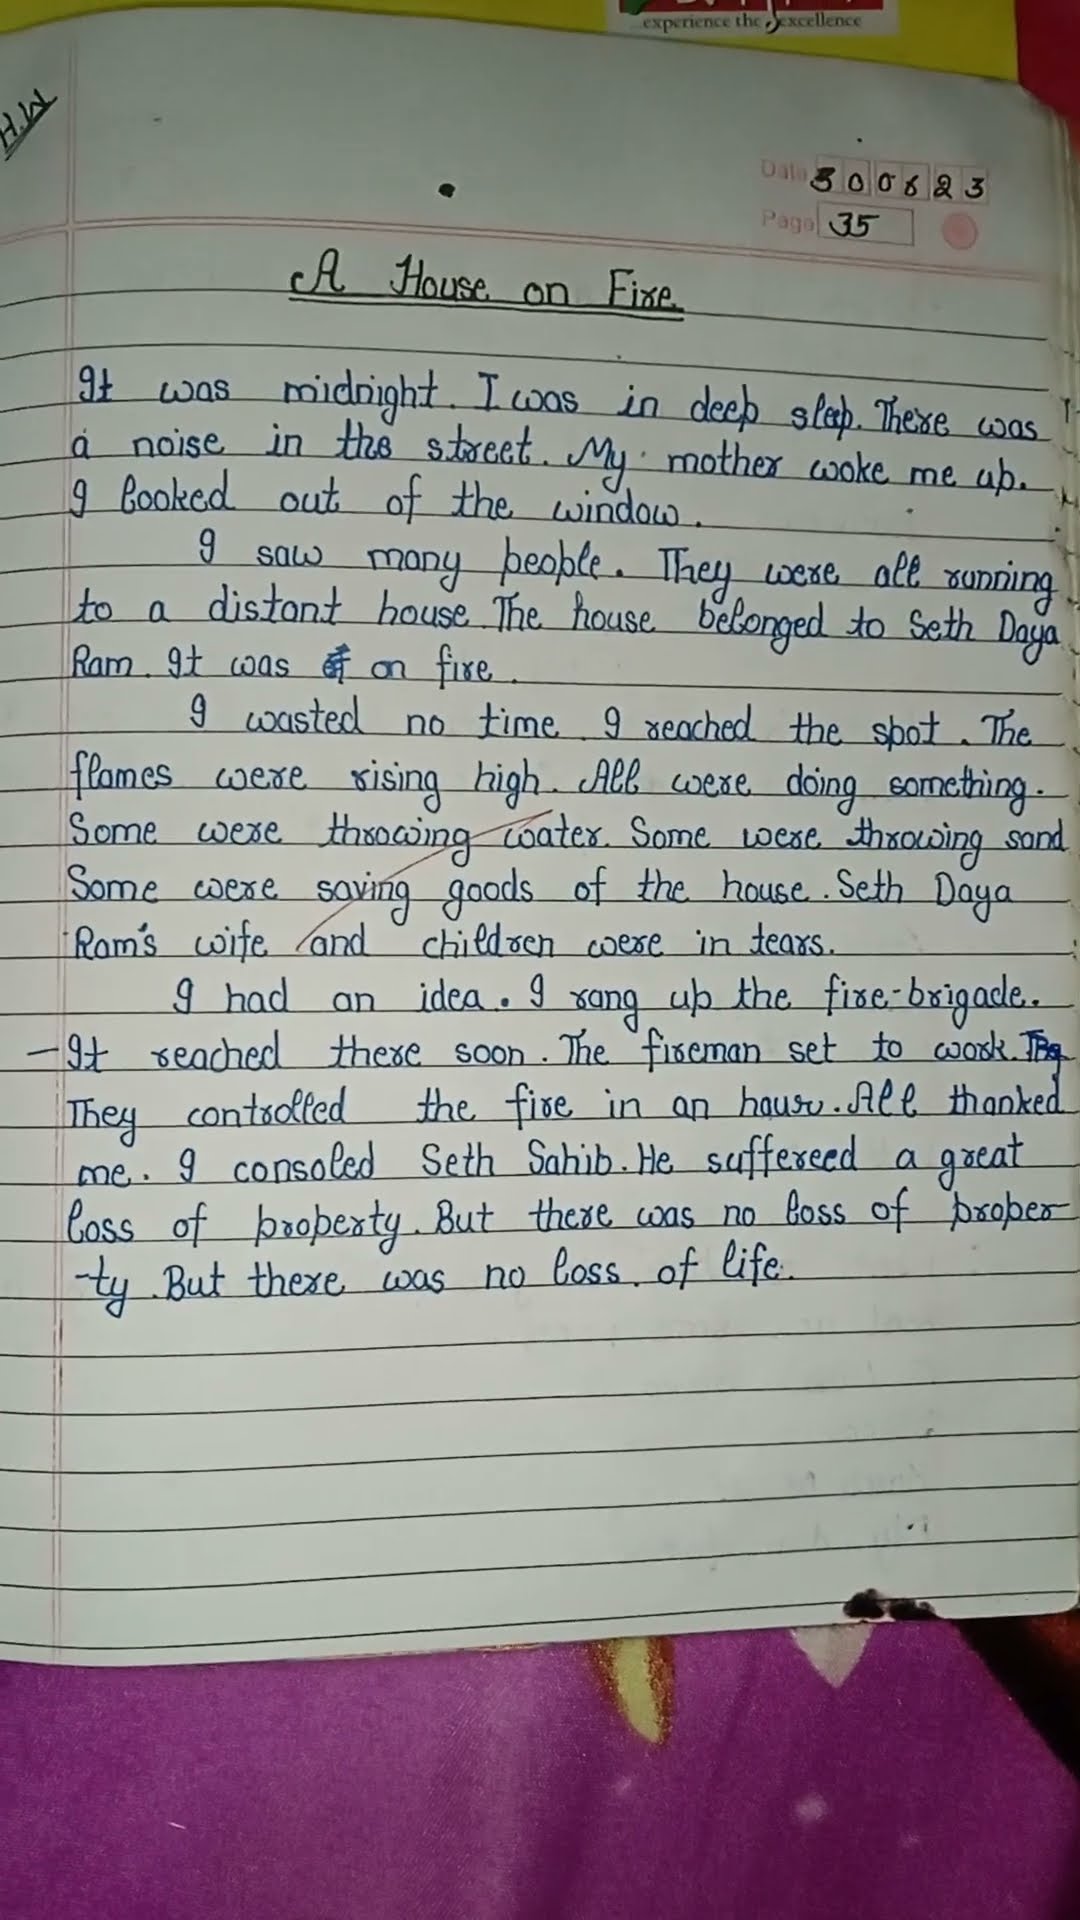 experience the excellence
H.W
Date 300623
Page 35
A House on Fire
It was midnight. I was in deep sleep. There was
a noise in the street. My mother woke me up.
I looked out of the window.
I saw many people. They were all running
to a distant house. The house belonged to Seth Daya
Ram. It was on fire.
I wasted no time. I reached the spot. The
flames were rising high. All were doing something.
Some were throwing water. Some were throwing sand
Some were saving goods of the house. Seth Daya
Ram's wife and children were in tears.
I had an idea. I rang up the fire-brigade.
-It reached there soon. The fireman set to work.
They controlled the fire in an hour. All thanked
me. I consoled Seth Sahib. He suffereed a great
loss of property. But there was no loss of proper
-ty. But there was no loss of life.